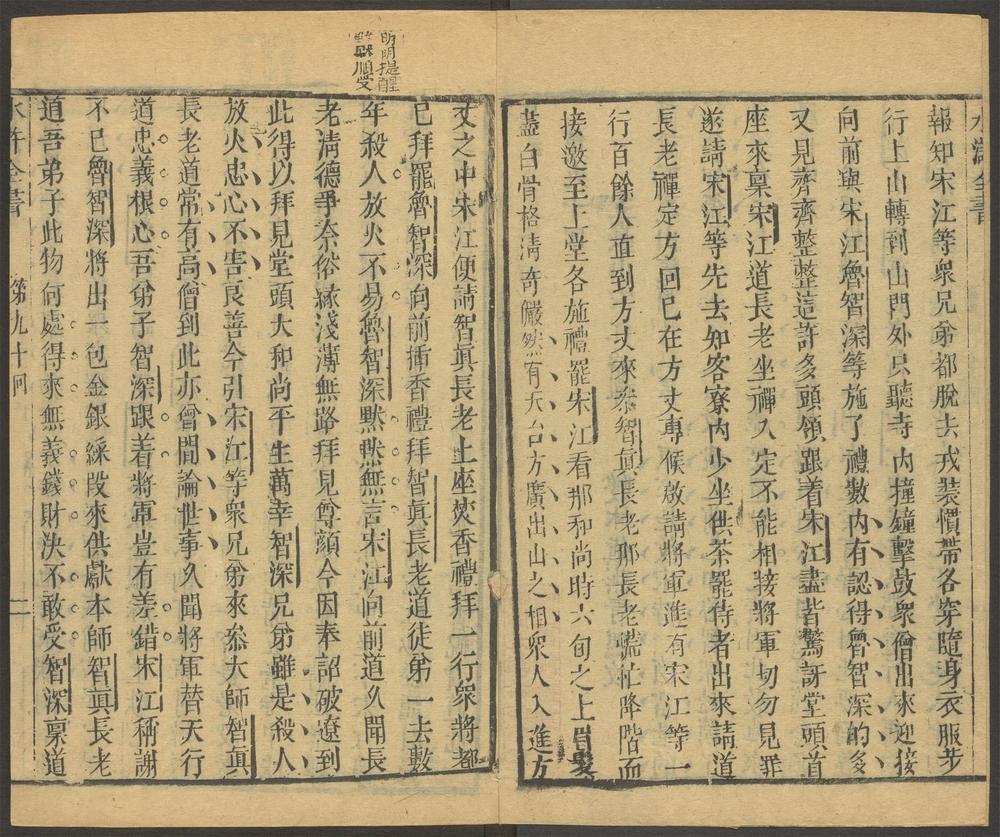 水滸全書
報知宋江等衆兄弟都脫去戎裝慣帶各穿隨身衣服步
行上山轉到山門外只聽寺內撞鐘擊鼓衆僧出來迎接
向前與宋江魯智深等施了禮數內有認得魯智深的多
又見齊齊整整這許多頭領跟着宋江盡皆驚訝堂頭首
座來稟宋江道長老坐禪入定不能相接將軍切勿見罪
遂請宋江等先去知客寮內少坐供茶罷侍者出來請道
長老禪定方回已在方丈專候啟請將軍進有宋江等一
行百餘人直到方丈來叅智真長老那長老慌忙降階而
接邀至上堂各施禮罷宋江看那和尚時六旬之上眉髮
盡白骨格淸奇儼然有天台方廣出山之相衆人入進方
明明提醒
默默順受
丈之中宋江便請智真長老上座焚香禮拜一行衆將都
已拜罷魯智深向前揷香禮拜智真長老道徒弟一去數
年殺人放火不易魯智深默默無言宋江向前道久聞長
老淸德爭奈俗緣淺薄無路拜見尊顔今因奉詔破遼到
此得以拜見堂頭大和尚平生萬幸智深兄弟雖是殺人
放火忠心不害良善今引宋江等衆兄弟來叅大師智真
長老道常有高僧到此亦曾閒論世事久聞將軍替天行
道忠義根心吾弟子智深跟着將軍豈有差錯宋江稱謝
不已魯智深將出一包金銀綵段來供獻本師智真長老
道吾弟子此物何處得來無義錢財決不敢受智深稟道
水滸全書
第九十回
二